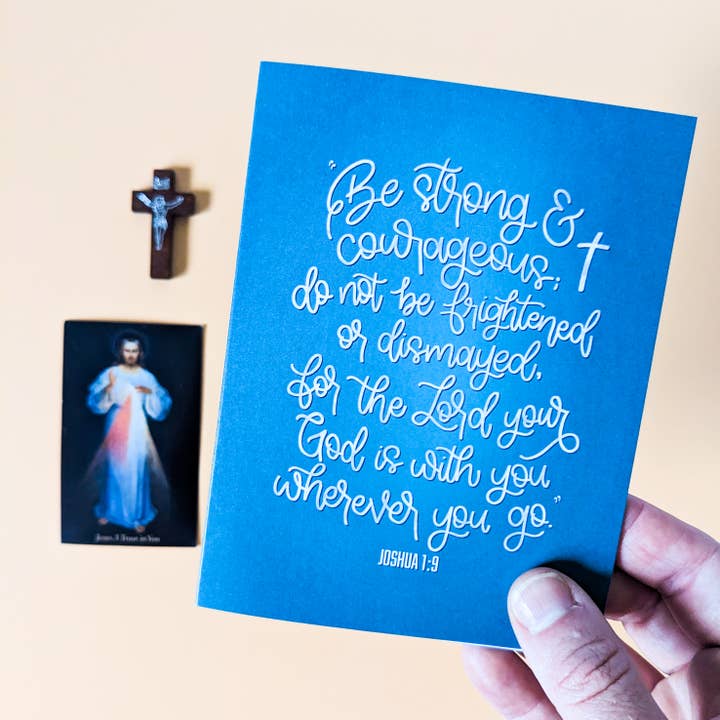 "Be strong &
courageous;
do not be frightened
or dismayed,
for the Lord your
God is with you
wherever you go."
JOSHUA 1:9
Jesus, I Trust in You